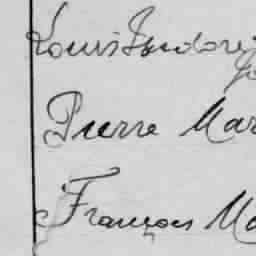 Louis Isidore
Pierre Mar
François Ma